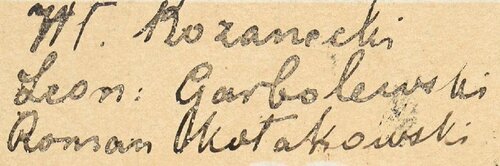 W. Rozanecki
Leon: Garbolewski
Roman Kołakowski